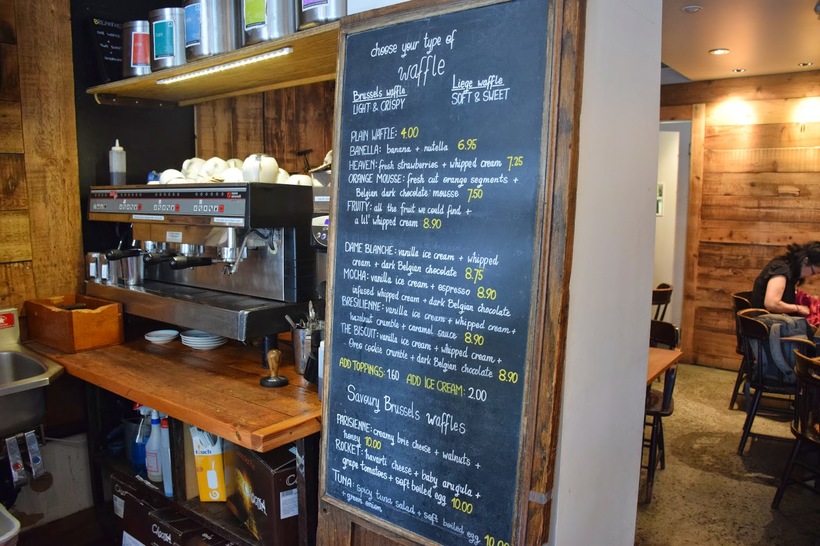 choose your type of
waffle
Brussels waffle
LIGHT & CRISPY
Liege waffle
SOFT & SWEET
PLAIN WAFFLE: 4.00
BANELLA: banana + nutella 6.95
HEAVEN: fresh strawberries + whipped cream 7.25
ORANGE MOUSSE: fresh cut orange segments +
Belgian dark chocolate mousse 7.50
FRUITY: all the fruit we could find +
a lil' whipped cream 8.90
DAME BLANCHE: vanilla ice cream + whipped
cream + dark Belgian chocolate 8.75
MOCHA: vanilla ice cream + espresso 8.90
infused whipped cream + dark Belgian chocolate
BRESILIENNE: vanilla ice cream + whipped cream +
hazelnut crumble + caramel sauce 8.90
THE BISCUIT: vanilla ice cream + whipped cream +
Oreo cookie crumble + dark Belgian chocolate 8.90
ADD TOPPINGS: 1.60 ADD ICE CREAM: 2.00
Savoury Brussels waffles
PARISIENNE: creamy brie cheese + walnuts +
honey 10.00
ROCKET: havarti cheese + baby arugula +
grape tomatoes + soft boiled egg 10.00
TUNA: spicy tuna salad + soft boiled egg 10.00
+ green onion